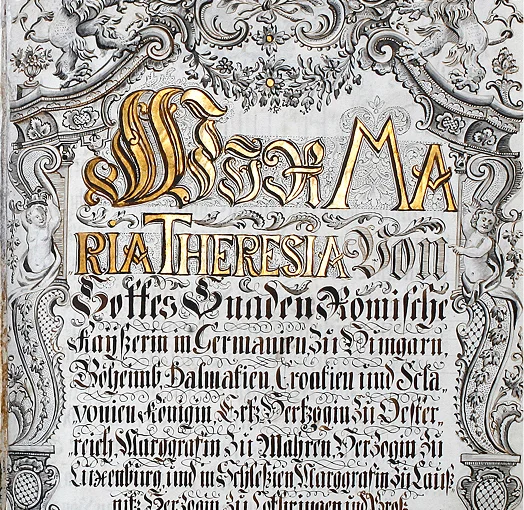 Wir MA
RIA THERESIA Von
Gottes Gnaden Römische
Kaÿßerin in Germanien zu Hungarn,
Böheimb, Dalmatien, Croatien und Scla„
vonien Königin, Ertz Hertzogin zu Oester„
reich, Marggrafin zu Mähren, Herzogin zu
Luxenburg, und in Schleßien, Marggrafin zu Lauß
nitz, Herzogin zu Lothringen und